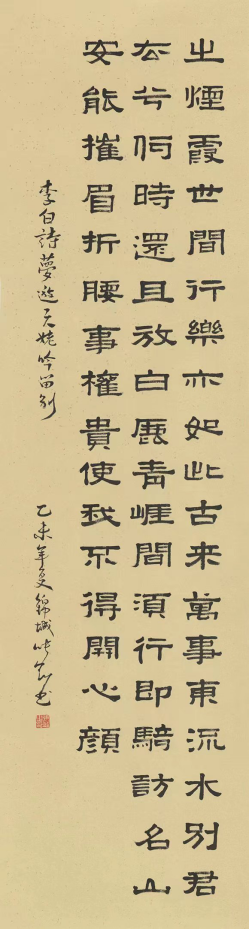 之煙霞世間行樂亦如此古來萬事東流水別君
去兮何時還且放白鹿青崖間須行即騎訪名山
安能摧眉折腰事權貴使我不得開心顏
李白詩夢遊天姥吟留別
乙未年夏錦城書